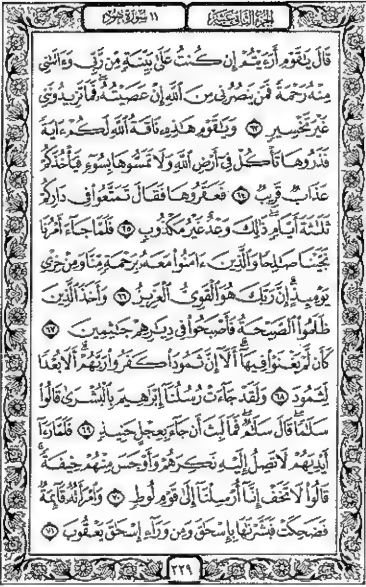 الجزء الثاني عشر
١١ سورة هود
قَالَ يَٰقَوْمِ أَرَءَيْتُمْ إِن كُنتُ عَلَىٰ بَيِّنَةٍ مِّن رَّبِّى وَءَاتَىٰنِى
مِنْهُ رَحْمَةً فَمَن يَنصُرُنِى مِنَ ٱللَّهِ إِنْ عَصَيْتُهُۥ ۖ فَمَا تَزِيدُونَنِى
غَيْرَ تَخْسِيرٍ ٦٣ وَيَٰقَوْمِ هَٰذِهِۦ نَاقَةُ ٱللَّهِ لَكُمْ ءَايَةً
فَذَرُوهَا تَأْكُلْ فِىٓ أَرْضِ ٱللَّهِ وَلَا تَمَسُّوهَا بِسُوٓءٍ فَيَأْخُذَكُمْ
عَذَابٌ قَرِيبٌ ٦٤ فَعَقَرُوهَا فَقَالَ تَمَتَّعُوا۟ فِى دَارِكُمْ
ثَلَٰثَةَ أَيَّامٍ ۖ ذَٰلِكَ وَعْدٌ غَيْرُ مَكْذُوبٍ ٦٥ فَلَمَّا جَآءَ أَمْرُنَا
نَجَّيْنَا صَٰلِحًا وَٱلَّذِينَ ءَامَنُوا۟ مَعَهُۥ بِرَحْمَةٍ مِّنَّا وَمِنْ خِزْىِ
يَوْمِئِذٍ ۗ إِنَّ رَبَّكَ هُوَ ٱلْقَوِىُّ ٱلْعَزِيزُ ٦٦ وَأَخَذَ ٱلَّذِينَ
ظَلَمُوا۟ ٱلصَّيْحَةُ فَأَصْبَحُوا۟ فِى دِيَٰرِهِمْ جَٰثِمِينَ ٦٧
كَأَن لَّمْ يَغْنَوْا۟ فِيهَآ ۗ أَلَآ إِنَّ ثَمُودَا۟ كَفَرُوا۟ رَبَّهُمْ ۗ أَلَا بُعْدًا
لِّثَمُودَ ٦٨ وَلَقَدْ جَآءَتْ رُسُلُنَآ إِبْرَٰهِيمَ بِٱلْبُشْرَىٰ قَالُوا۟
سَلَٰمًا ۖ قَالَ سَلَٰمٌ ۖ فَمَا لَبِثَ أَن جَآءَ بِعِجْلٍ حَنِيذٍ ٦٩ فَلَمَّا رَءَآ
أَيْدِيَهُمْ لَا تَصِلُ إِلَيْهِ نَكِرَهُمْ وَأَوْجَسَ مِنْهُمْ خِيفَةً ۚ
قَالُوا۟ لَا تَخَفْ إِنَّآ أُرْسِلْنَآ إِلَىٰ قَوْمِ لُوطٍ ٧٠ وَٱمْرَأَتُهُۥ قَآئِمَةٌ
فَضَحِكَتْ فَبَشَّرْنَٰهَا بِإِسْحَٰقَ وَمِن وَرَآءِ إِسْحَٰقَ يَعْقُوبَ ٧١
٢٢٩